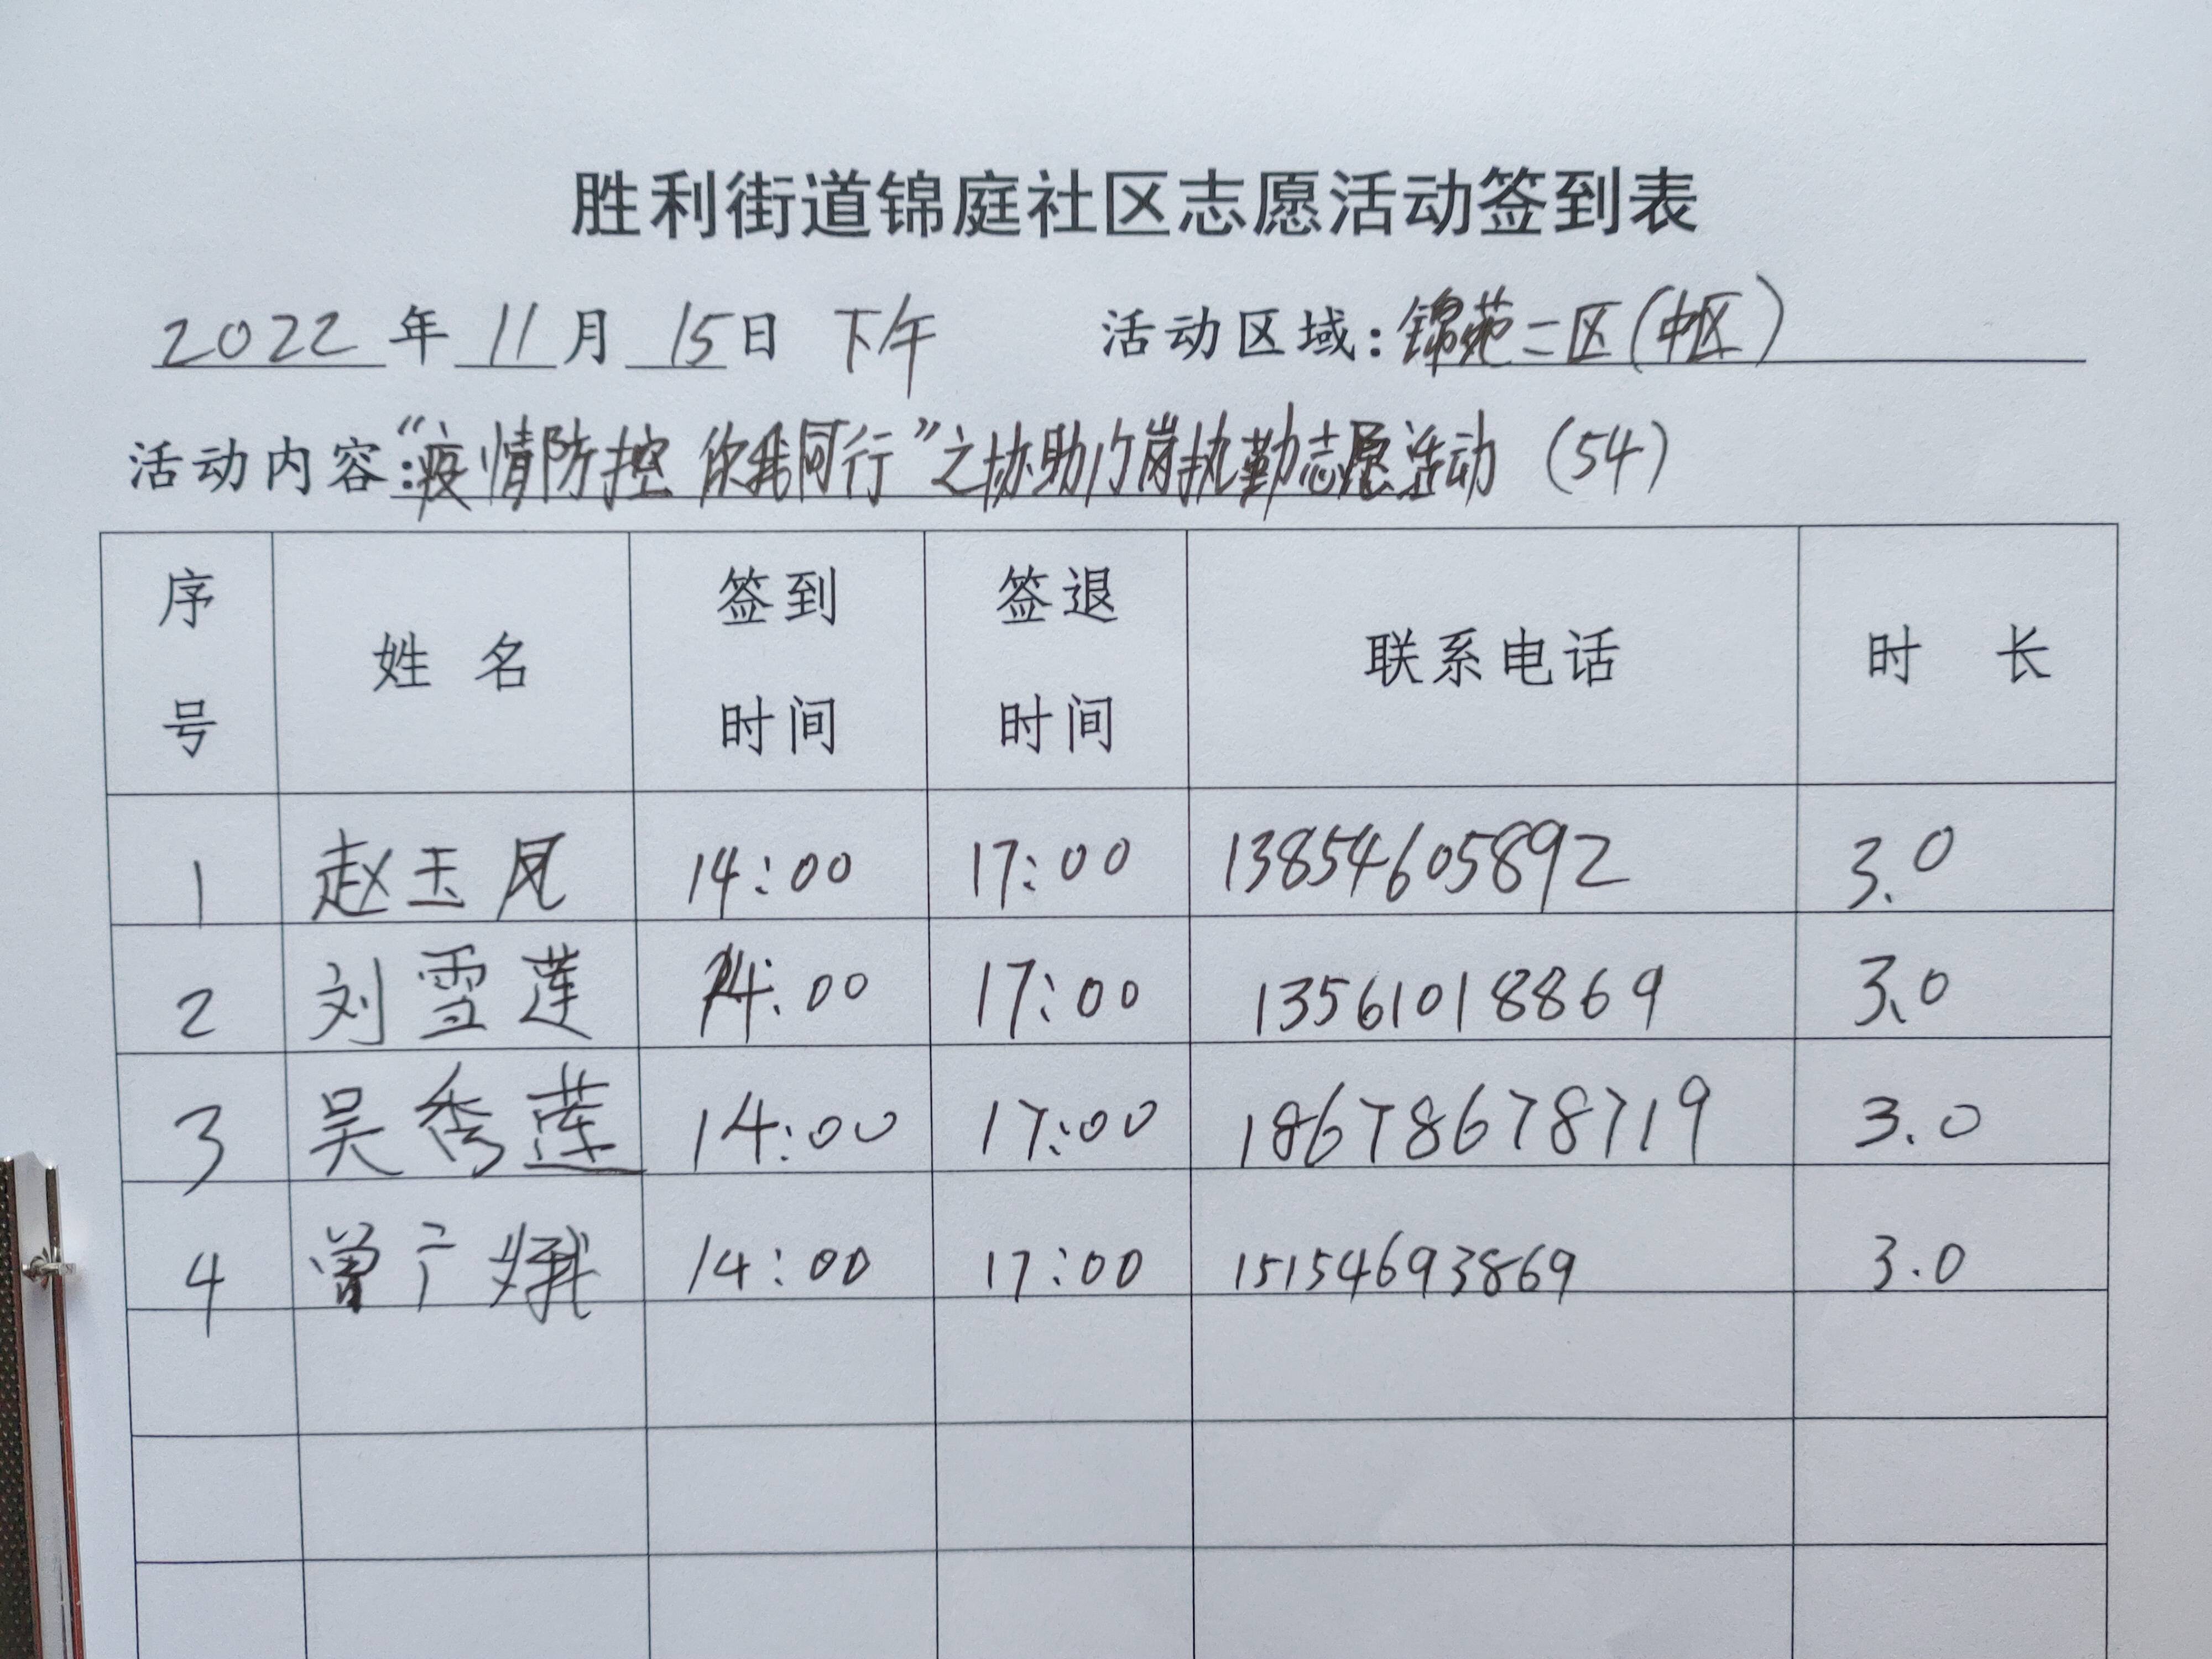 胜利街道锦庭社区志愿活动签到表
2022 年 11 月 15日 下午 活动区域:锦苑二区(中区)
活动内容:“疫情防控 你我同行”之协助门岗执勤志愿活动 (54)
序号 姓名 签到时间 签退时间 联系电话 时长
1 赵玉凤 14:00 17:00 13854605892 3.0
2 刘雪莲 14:00 17:00 13561018869 3.0
3 吴秀莲 14:00 17:00 18678678719 3.0
4 曾广娥 14:00 17:00 15154693869 3.0